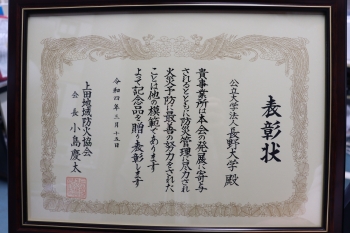 表彰状
公立大学法人長野大学 殿
貴事業所は本会の発展に寄与
されるとともに防災管理に尽力され
火災予防に最善の努力をされた
ことは他の模範であります
よって記念品を贈り表彰します
令和四年三月十五日
上田地域防火協会
会長 小島慶太